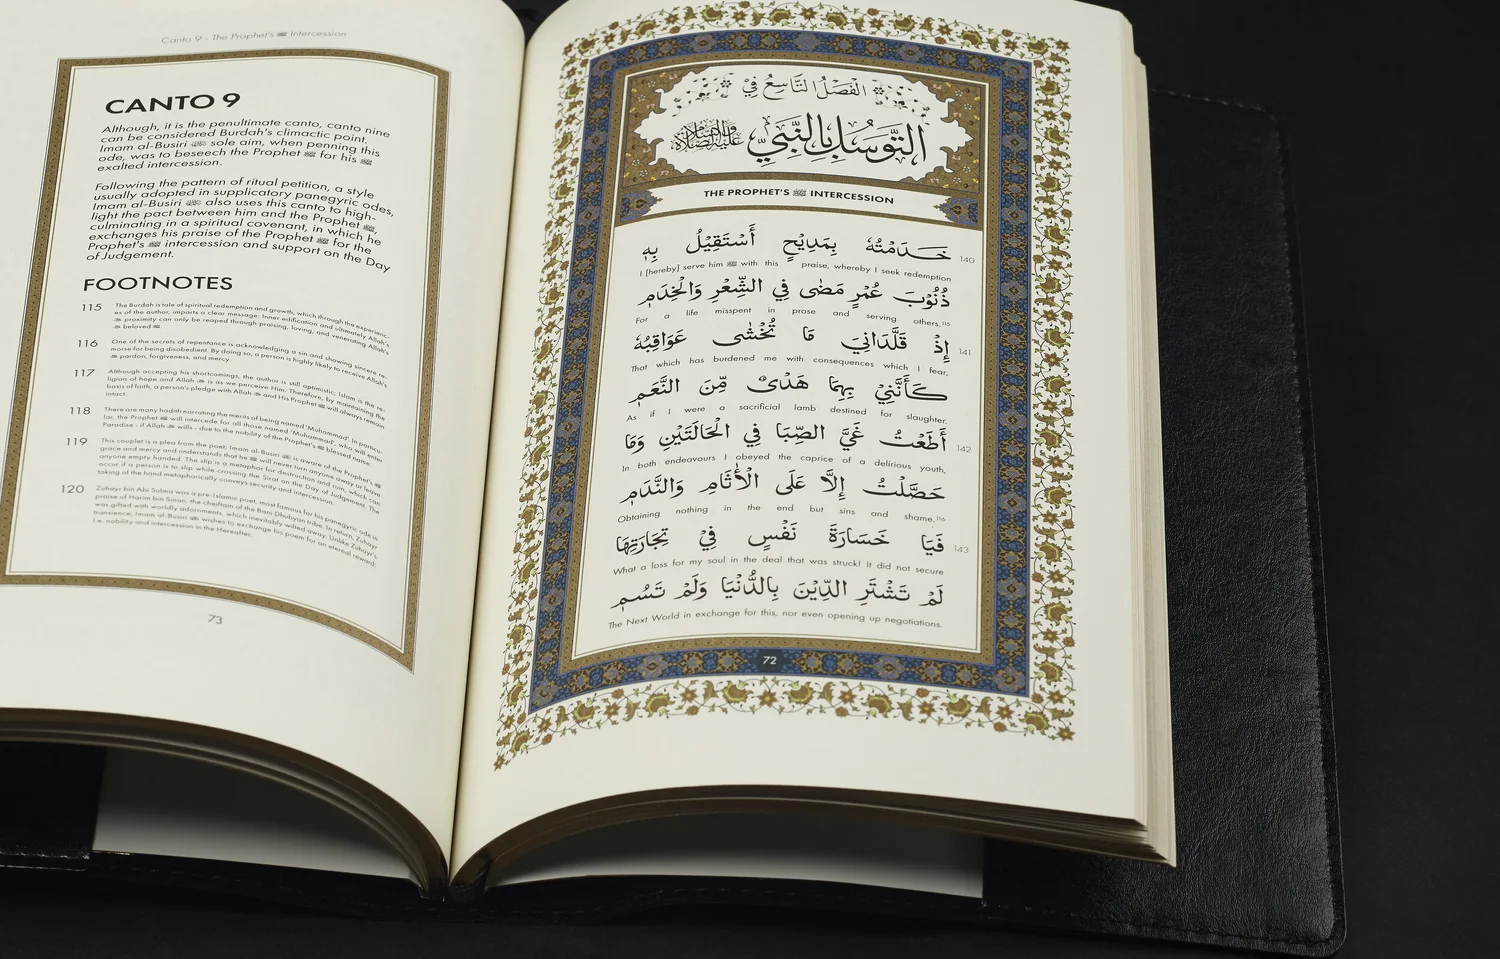 الفَصْلُ التَّاسِعُ فِيْ
التَّوَسُّلِ بِالنَّبِيِّ عَلَيْهِ الصَّلَاةُ وَالسَّلَامُ
THE PROPHET'S ﷺ INTERCESSION
خَدَمْتُهُ بِمَدِيْحٍ أَسْتَقِيْلُ بِهِ 140
I [hereby] serve him ﷺ with this praise, whereby I seek redemption
ذُنُوْبَ عُمْرٍ مَضٰى فِي الشِّعْرِ وَالْخِدَمِ
For a life misspent in prose and serving others.115
إِذْ قَلَّدَانِيَ مَا تُخْشٰى عَوَاقِبُهُ 141
That which has burdened me with consequences which I fear,
كَأَنَّنِيْ بِهِمَا هَدْىٌ مِّنَ النَّعَمِ
As if I were a sacrificial lamb destined for slaughter.
أَطَعْتُ غَيَّ الصِّبَا فِي الْحَالَتَيْنِ وَمَا 142
In both endeavours I obeyed the caprice of a delirious youth,
حَصَّلْتُ إِلَّا عَلَى الْأٰثَامِ وَالنَّدَمِ
Obtaining nothing in the end but sins and shame.116
فَيَا خَسَارَةَ نَفْسٍ فِيْ تِجَارَتِهَا 143
What a loss for my soul in the deal that was struck! It did not secure
لَمْ تَشْتَرِ الدِّيْنَ بِالدُّنْيَا وَلَمْ تَسُمِ
The Next World in exchange for this, nor even opening up negotiations.
72
Canto 9 - The Prophet's ﷺ Intercession
CANTO 9
Although, it is the penultimate canto, canto nine
can be considered Burdah's climactic point.
Imam al-Busiri sole aim, when penning this
ode, was to beseech the Prophet ﷺ for his ﷺ
exalted intercession.
Following the pattern of ritual petition, a style
usually adopted in supplicatory panegyric odes,
Imam al-Busiri also uses this canto to high-
light the pact between him and the Prophet ﷺ,
culminating in a spiritual covenant, in which he
exchanges his praise of the Prophet ﷺ for the
Prophet's ﷺ intercession and support on the Day
of Judgement.
FOOTNOTES
115 The Burdah is tale of spiritual redemption and growth, which through the experienc-
es of the author, imparts a clear message: Inner edification and ultimately Allah's
ﷻ proximity can only be reaped through praising, loving, and venerating Allah's
ﷻ beloved ﷺ.
116 One of the secrets of repentance is acknowledging a sin and showing sincere re-
morse for being disobedient. By doing so, a person is highly likely to receive Allah's
ﷻ pardon, forgiveness, and mercy.
117 Although accepting his shortcomings, the author is still optimistic; Islam is the re-
ligion of hope and Allah ﷻ is as we perceive Him. Therefore, by maintaining the
basis of faith, a person's pledge with Allah ﷻ and His Prophet ﷺ will always remain
intact.
118 There are many hadith narrating the merits of being named 'Muhammad'. In particu-
lar, the Prophet ﷺ will intercede for all those named 'Muhammad', who will enter
Paradise - if Allah ﷻ wills - due to the nobility of the Prophet's ﷺ blessed name.
119 This couplet is a plea from the poet; Imam al-Busiri is aware of the Prophet's ﷺ
grace and mercy and understands that he ﷺ will never turn anyone away or leave
anyone empty handed. The slip is a metaphor for destruction and ruin, which can
occur if a person is to slip while crossing the Sirat on the Day of Judgement. The
taking of the hand metaphorically conveys security and intercession.
120 Zuhayr bin Abi Sulma was a pre-Islamic poet, most famous for his panegyric ode in
praise of Harim bin Sinan, the chieftain of the Bani Dhubyan tribe. In return, Zuhayr
was gifted with worldly adornments, which inevitably wilted away. Unlike Zuhayr's
transience, Imam al-Busiri wishes to exchange his poem for an eternal reward:
i.e. nobility and intercession in the Hereafter.
73